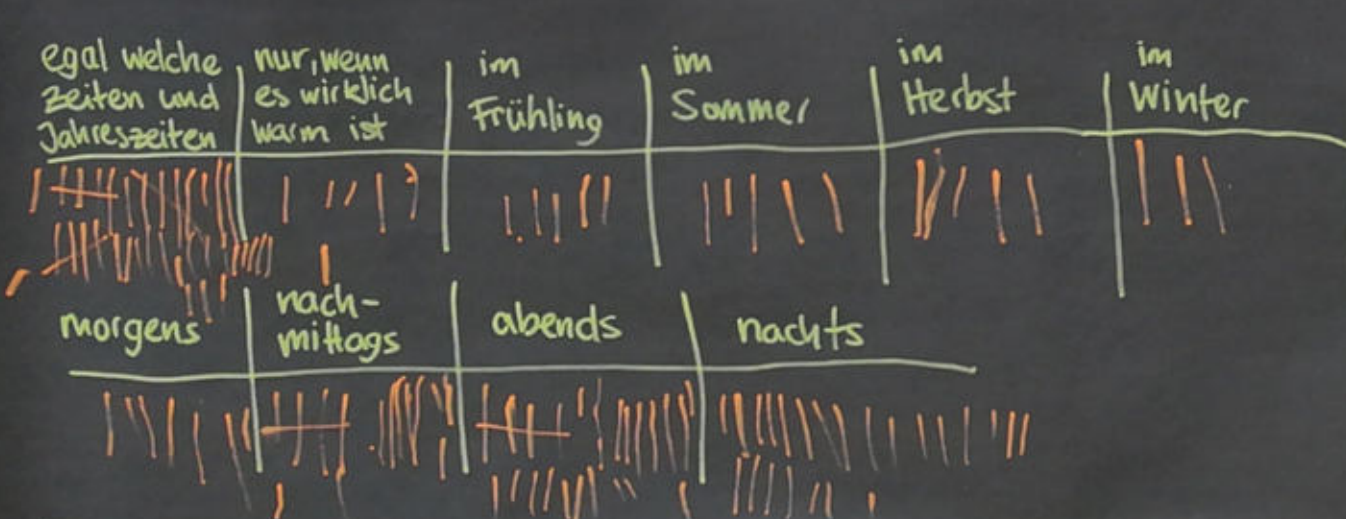 egal welche
Zeiten und
Jahreszeiten
nur, wenn
es wirklich
warm ist
im
Frühling
im
Sommer
im
Herbst
im
Winter
morgens
nach-
mittags
abends
nachts